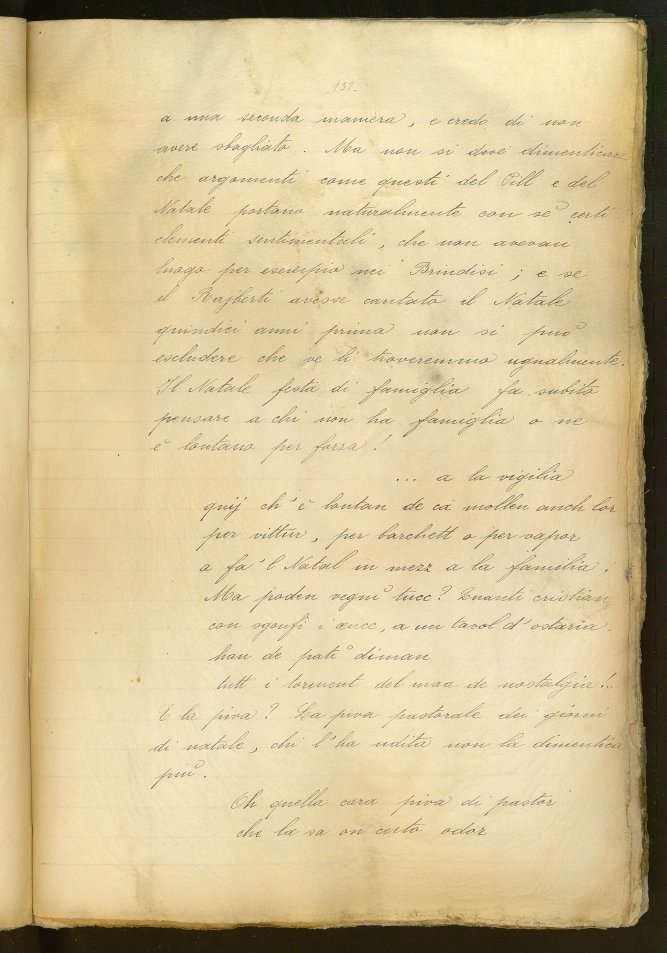 -132-
a una seconda maniera, e credo di non
avere sbagliato. Ma non si deve dimenticare
che argomenti come questi del Pill e del
Natale portano naturalmente con sè certi
elementi sentimentali, che non avevan
luogo per esempio nei Brindisi; e se
il Rajberti avesse cantato il Natale
quindici anni prima non si può
escludere che ve li troveremmo ugualmente.
Il Natale festa di famiglia fa subito
pensare a chi non ha famiglia o ne
è lontano per forza!
... a la vigilia
quij ch'è lontan de cà mollen anch lor
per vittur, per barchett o per vapor
a fa 'l Natal in mezz a la familia.
Ma poden vegnì tucc? Quanti cristian
con sgonfi i œucc, a un tavol d'ostaria
han de patì diman
tutt i torment del maa de nostalgia!..
E la piva? La piva pastorale dei giorni
di natale, chi l'ha udita non la dimentica
più.
Oh quella cara piva di pastor
che la sa on certo odor